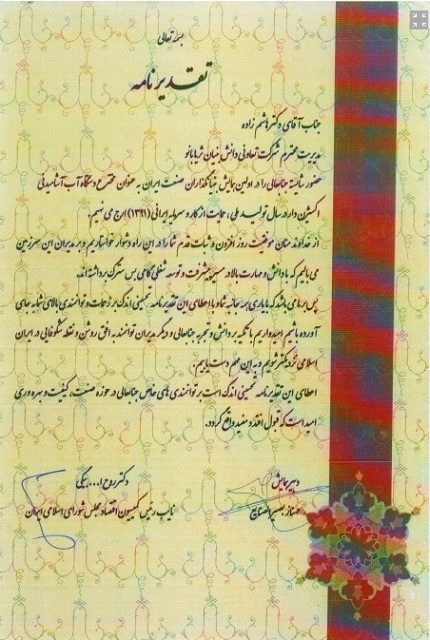 بسمه تعالی
تقدیرنامه
جناب آقای دکتر هاشم زاده
مدیریت محترم شرکت تعاونی دانش بنیان ثریا بانو
حضور شایسته جنابعالی را در اولین همایش بنیانگذاران صنعت ایران به عنوان مخترع دستگاه آب آشامیدنی
اکسیژن دار در سال تولید ملی، حمایت از کار و سرمایه ایرانی (۱۳۹۱) ارج می نهیم.
از خداوند منان موفقیت روز افزون و ثبات قدم شما را در این راه دشوار خواستاریم و بر مدیران این سرزمین
می بالیم که با دانش و مهارت بالا در مسیر پیشرفت و توسعه شغلی گامی بس سترگ برداشته اند.
پس بر ما می باشد که با یاری همه جانبه شما و با اعطای این تقدیرنامه تحسینی اندک بر زحمات و توانمندی بالای شما به جای
آورده باشیم. امیدواریم با تکیه بر دانش و تجربه جنابعالی و دیگر مدیران توانمند به افق روشن و نقطه شکوفایی در ایران
اسلامی نزدیکتر شویم و به این مهم دست یابیم.
اعطای این تقدیرنامه تحسینی اندک است بر توانمندی های خاص جنابعالی در حوزه صنعت، کیفیت و بهره وری
امید است که قبول افتد و مفید واقع گردد.
دبیر همایش
مهناز صنایع
دکتر روح ا... بیگی
نایب رئیس کمیسیون اقتصاد مجلس شورای اسلامی ایران